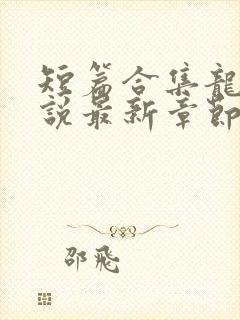 短篇合集龍
說最新章節
邵飛